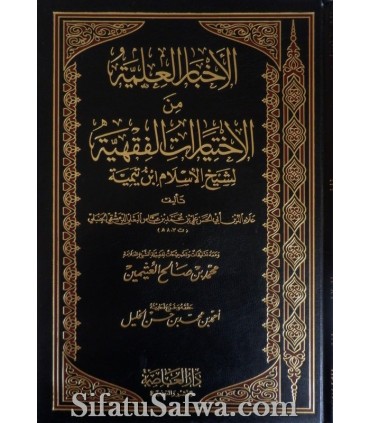 الأخبار العلمية
من
الاختيارات الفقهية
لشيخ الإسلام ابن تيمية
تأليف
علاء الدين أبي الحسن علي بن محمد بن عباس البعلي الدمشقي الحنبلي
محمد بن صالح العثيمين
أحمد بن محمد بن حسن الخليل
دار العاصمة
SifatuSafwa.com